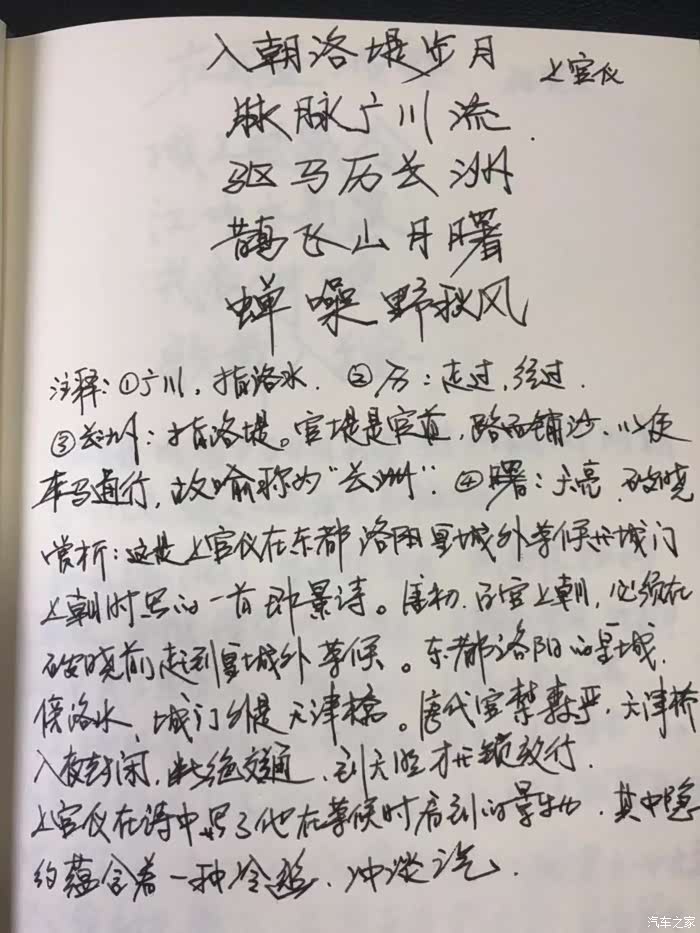 入朝洛堤步月
上官仪
脉脉广川流
驱马历长洲
鹊飞山月曙
蝉噪野秋风
注释：①广川，指洛水．②历：走过，经过．
③长洲：指洛堤。官堤是官道，路面铺沙、以便
车马通行，故喻称为“长洲”．④曙：天亮．破晓
赏析：这是上官仪在东都洛阳皇城外等候开城门
上朝时写的一首即景诗。唐初．百官上朝，必须在
破晓前赶到皇城外等候。东都洛阳的皇城．
傍洛水，城门外便是天津桥。唐代宫禁森严．天津桥
入夜封闭，断绝交通．到天明才开锁放行．
上官仪在诗中写了他在等候时看到的景物．其中隐
约蕴含着一种．冲淡之气．
汽车之家